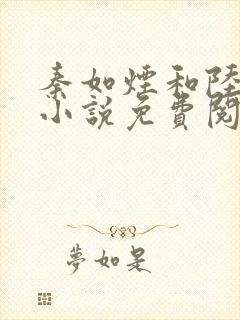 秦如煙和陸
小說免費閱
夢如是